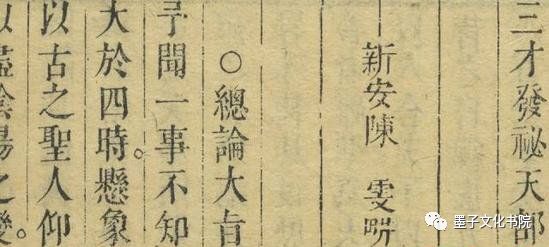 三才發祕天部
新安陳 雯畊
○總論大旨
予聞一事不知
大於四時。懸象
以古之聖人仰
以盡陰陽之變。
墨子文化书院